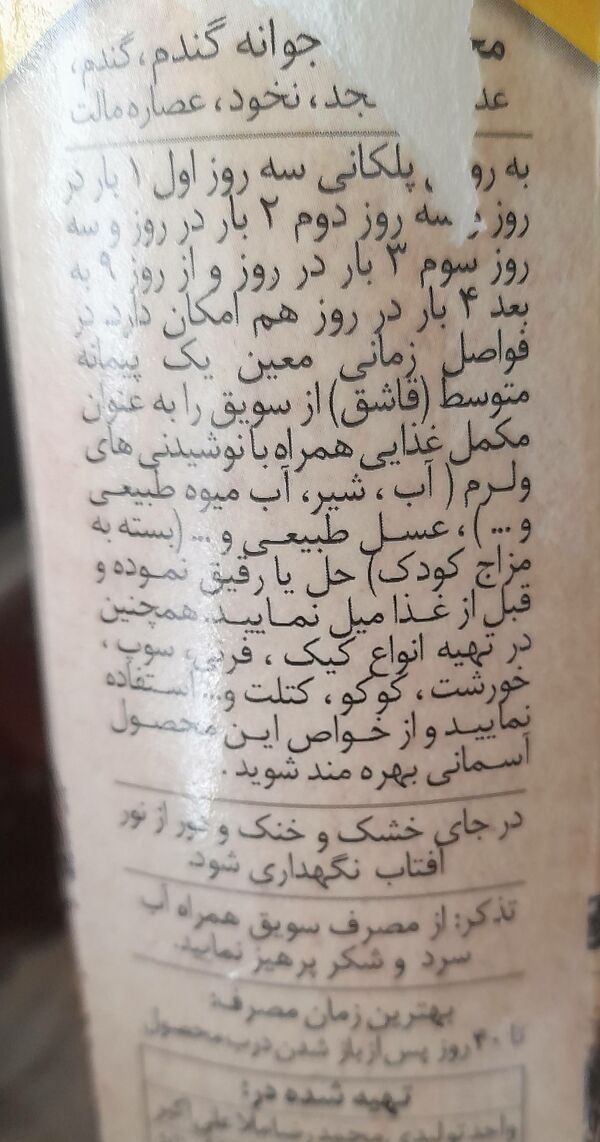 جوانه گندم، گندم،
نخود، عصاره مالت
به پلکانی سه روز اول ۱ بار در
روز و سه روز دوم ۲ بار در روز و سه
روز سوم ۳ بار در روز و از روز ۹ به
بعد ۴ بار در روز هم امکان دارد. در
فواصل زمانی معین یک پیمانه
متوسط (قاشق) از سویق را به عنوان
مکمل غذایی همراه با نوشیدنی های
ولرم ( آب ، شیر، آب میوه طبیعی
و ... ) ، عسل طبیعی و ... (بسته به
مزاج کودک) حل یا رقیق نموده و
قبل از غذا میل نمایید. همچنین
در تهیه انواع کیک ، فرنی، سوپ ،
خورشت ، کوکو ، کتلت و... استفاده
نمایید و از خواص این محصول
آسمانی بهره مند شوید .
در جای خشک و خنک و دور از نور
آفتاب نگهداری شود.
تذکر: از مصرف سویق همراه آب
سرد و شکر پرهیز نمایید.
بهترین زمان مصرف:
تا ۴۰ روز پس از باز شدن درب محصول
تهیه شده در:
واحد تولیدی